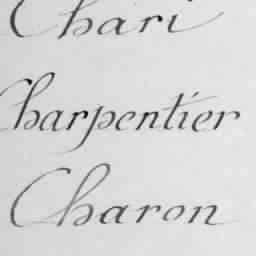 Chari
Charpentier
Charon